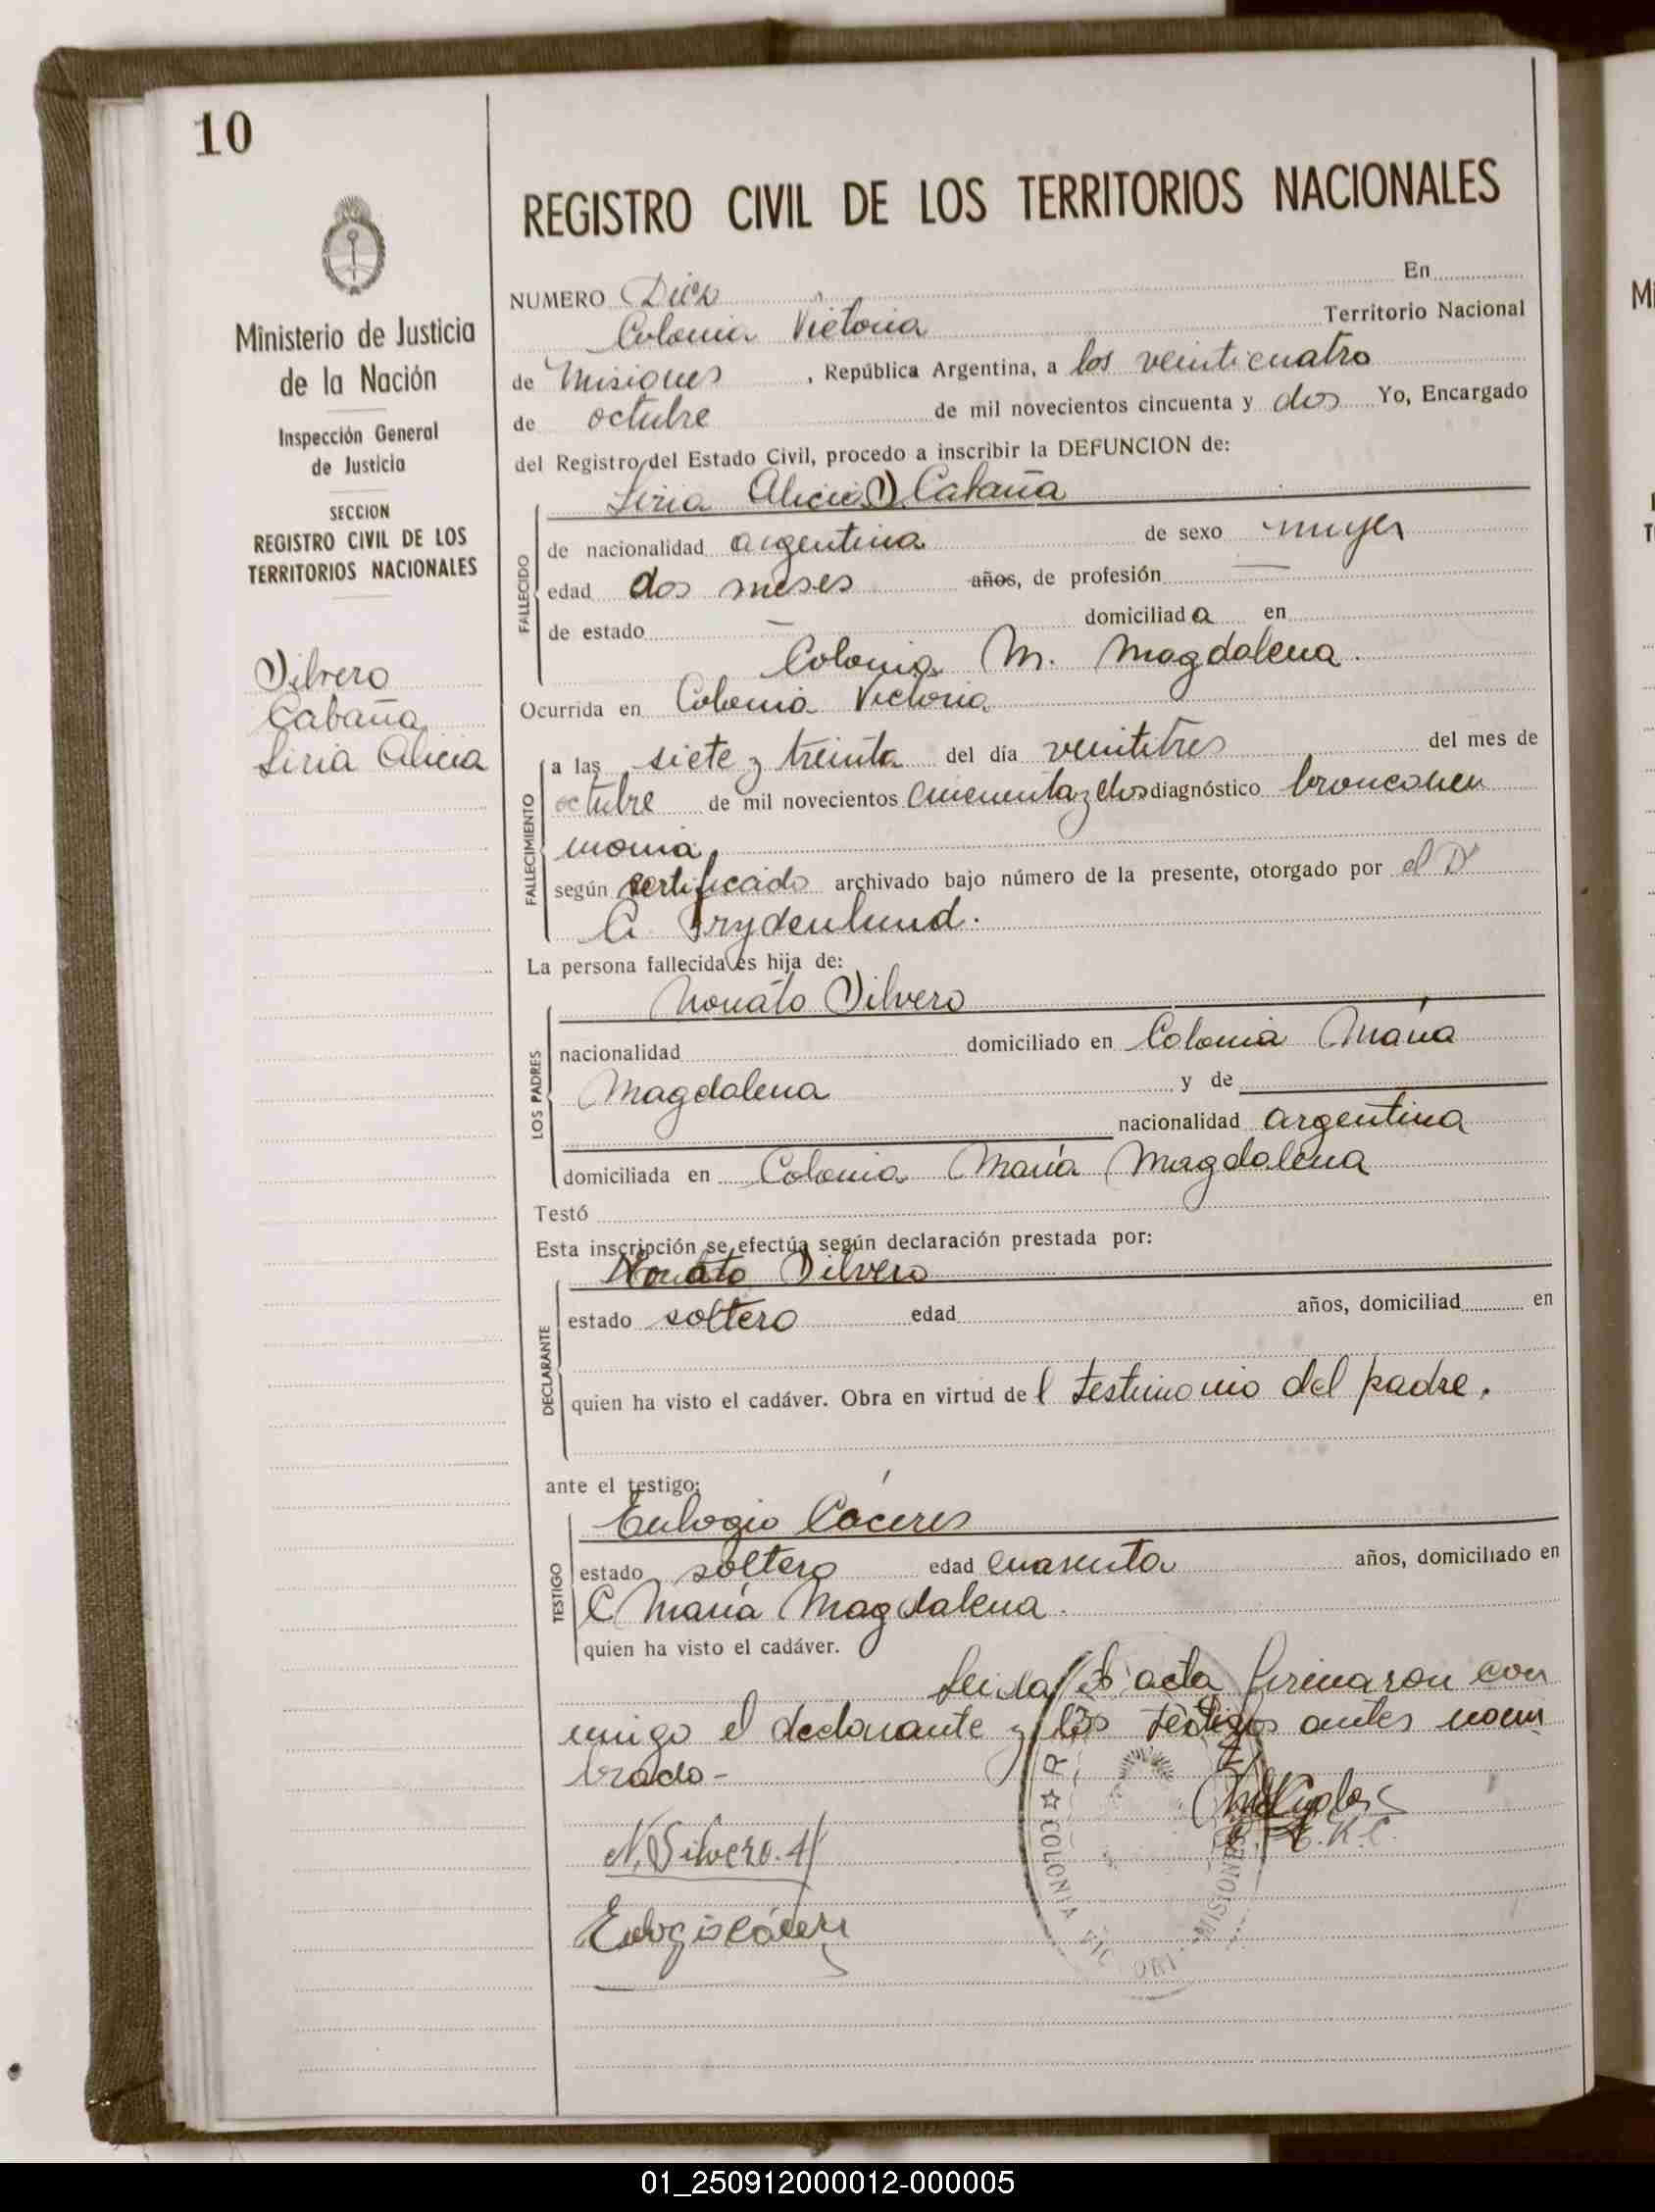 10
REGISTRO CIVIL DE LOS TERRITORIOS NACIONALES
Ministerio de Justicia
de la Nación
Inspección General
de Justicia
SECCION
REGISTRO CIVIL DE LOS
TERRITORIOS NACIONALES
Silvero
Cabaña
Liria Alicia
NUMERO Diez En
Colonia Victoria Territorio Nacional
de Misiones, República Argentina, a los veinticuatro
de octubre de mil novecientos cincuenta y dos Yo, Encargado
del Registro del Estado Civil, procedo a inscribir la DEFUNCION de:
Liria Alicia S. Cabaña
FALLECIDO
de nacionalidad argentina de sexo mujer
edad dos meses años, de profesión —
de estado — domiciliada en
Colonia M. Magdalena.
Ocurrida en Colonia Victoria
FALLECIMIENTO
a las siete y treinta del día veintitres del mes de
octubre de mil novecientos cincuenta y dos diagnóstico bronconeu
monia,
según certificado archivado bajo número de la presente, otorgado por el Dr
Frydenlund.
La persona fallecida es hija de:
Nonato Silvero
LOS PADRES
nacionalidad domiciliado en Colonia María
Magdalena y de
nacionalidad argentina
domiciliada en Colonia María Magdalena
Testó
Esta inscripción se efectúa según declaración prestada por:
Nonato Silvero
DECLARANTE
estado soltero edad años, domiciliad en
quien ha visto el cadáver. Obra en virtud del testimonio del padre.
ante el testigo:
Eulogio Cáceres
TESTIGO
estado soltero edad cuarenta años, domiciliado en
C María Magdalena.
quien ha visto el cadáver.
Leida el acta firmaron con
migo el declarante y los testigos antes nom
brado-
N. Silvero.
Eulogio Cáceres
COLONIA VICTORIA MISIONES
01_250912000012-000005